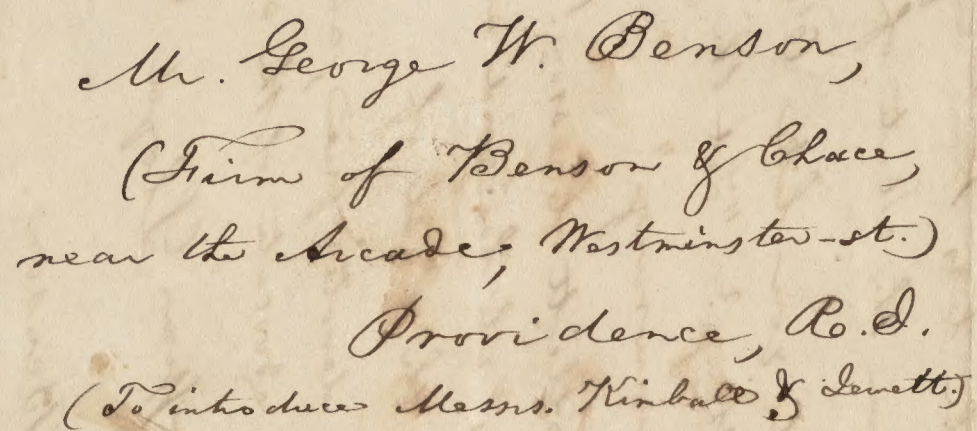 Mr. George W. Benson,
(Firm of Benson & Chace,
near the Arcade, Westminster-st.)
Providence, R.I.
(To introduce Messrs. Kimball & Jewett.)